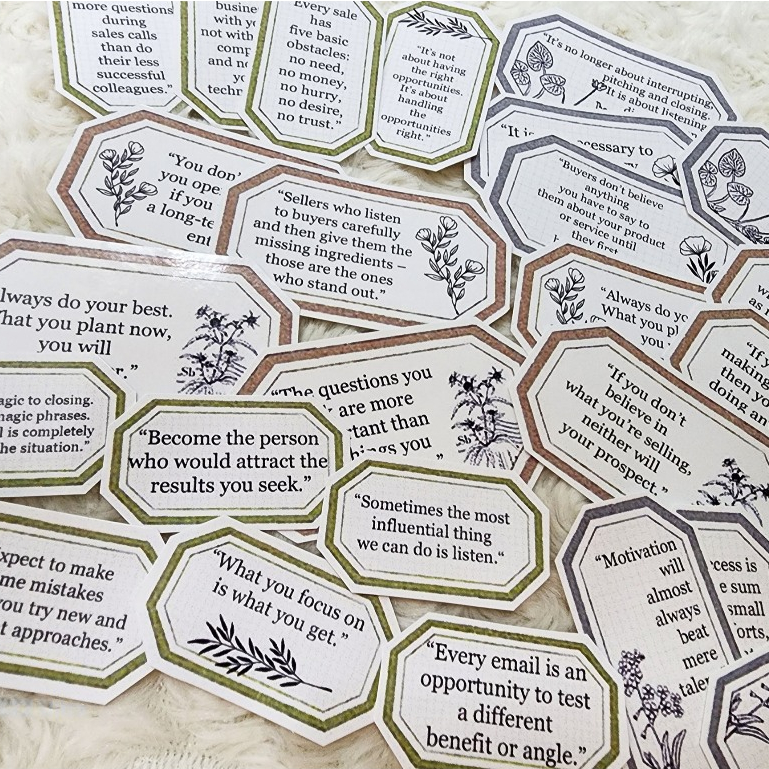 more questions
during
sales calls
than do
their less
successful
colleagues."
busin
with yo
not with
comp
and no
yo
techn
"Every sale
has
five basic
obstacles:
no need,
no money,
no hurry,
no desire,
no trust."
"It's not
about having
the right
opportunities.
It's about
handling
the
opportunities
right."
"It's no longer about interrupting,
pitching and closing.
It is about listening,
"It is
cessary to
"Buyers don't believe
anything
you have to say to
them about your product
or service until
they first
"You don'
you ope
if you
a long-te
ent
"Sellers who listen
to buyers carefully
and then give them the
missing ingredients –
those are the ones
who stand out."
"Always do yo
What you pl
you
w
as
"If y
making
then yo
doing an
lways do your best.
hat you plant now,
you will
r."
Sb
"The questions you
are more
tant than
ings you
"
Sb
"If you don't
believe in
what you're selling,
neither will
your prospect."
agic to closing.
magic phrases.
l is completely
he situation."
"Become the person
who would attract the
results you seek."
"Sometimes the most
influential thing
we can do is listen."
"Motivation
will
almost
always
beat
mere
taler
cess is
e sum
small
orts,
xpect to make
me mistakes
you try new and
t approaches."
"What you focus on
is what you get."
"Every email is an
opportunity to test
a different
benefit or angle."